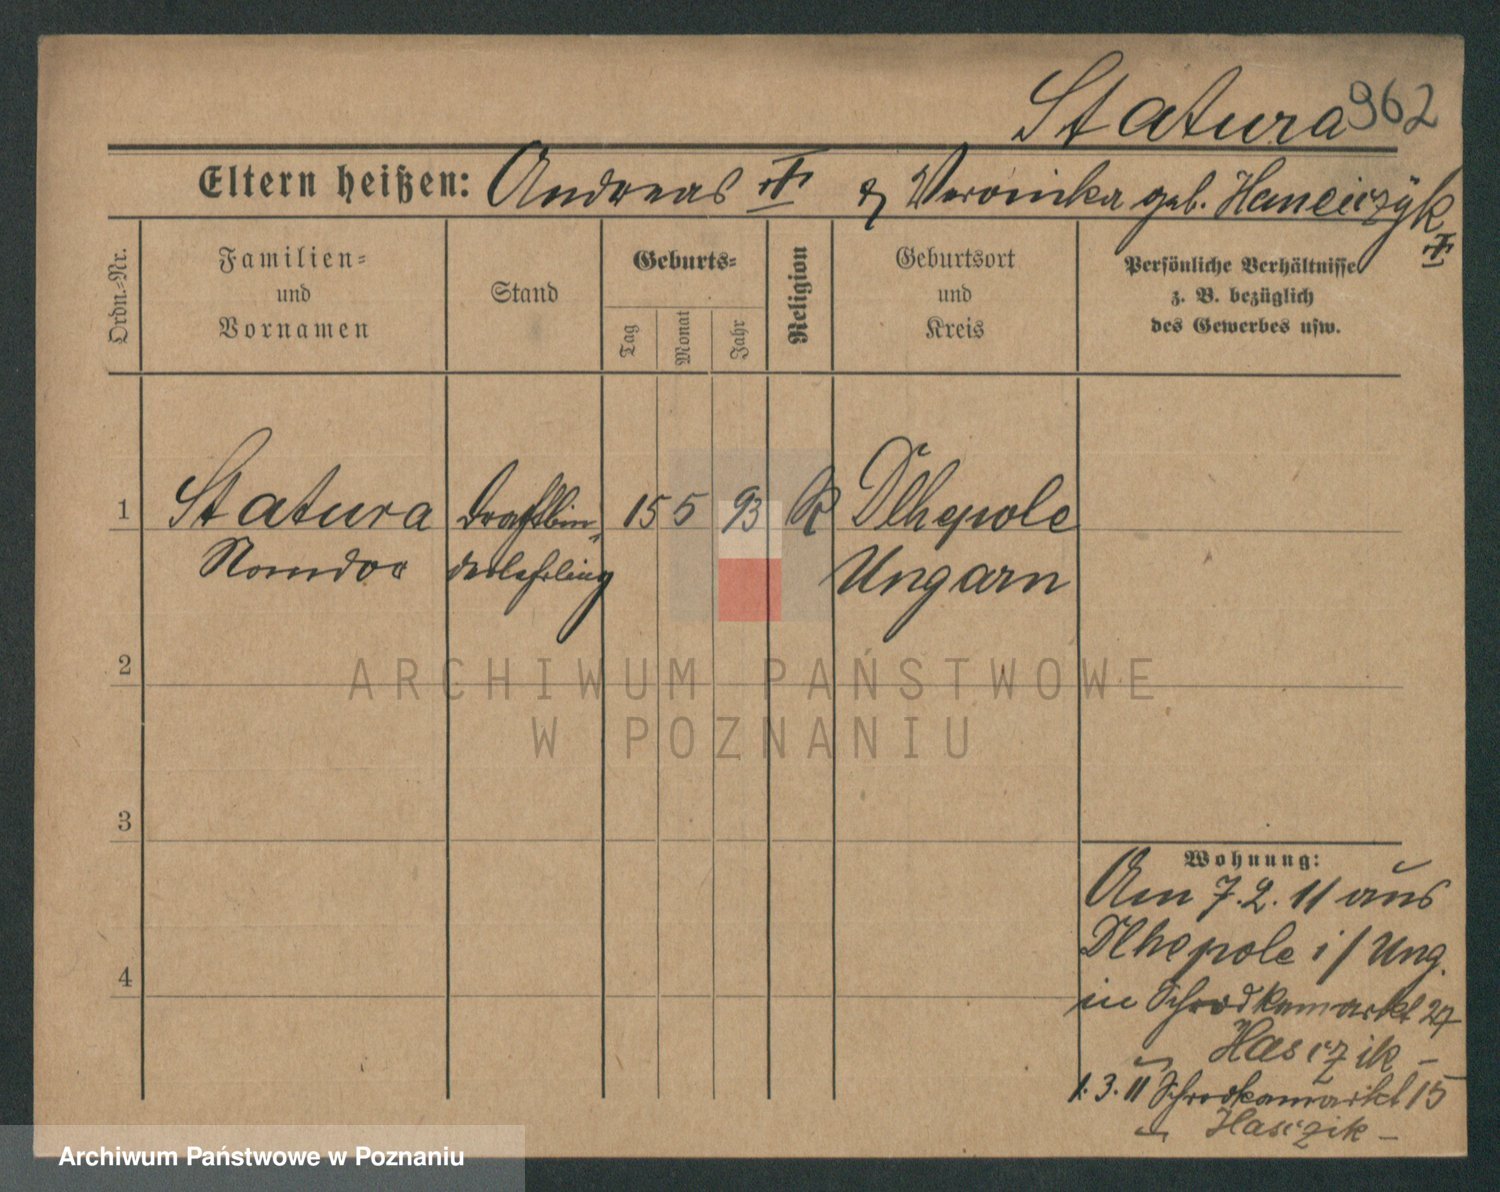 Statura 962
Eltern heißen: Andreas & Veronika geb. Hanciczyk
Ordn.-Nr.
Familien- und Vornamen
Stand
Geburts-
Tag
Monat
Jahr
Religion
Geburtsort und Kreis
Persönliche Verhältnisse
z. B. bezüglich
des Gewerbes usw.
1 Statura Drahtbin- 15 5 93 K Dlhepole
derlehrling Ungarn
2
3
4
Wohnung:
Am 7.2.11 aus
Dlhepole i/Ung.
in Schrodkamarkt 27
Hasczik –
1.3.11 Schrodkamarkt 15
Hasczik –
ARCHIWUM PAŃSTWOWE
W POZNANIU
Archiwum Państwowe w Poznaniu